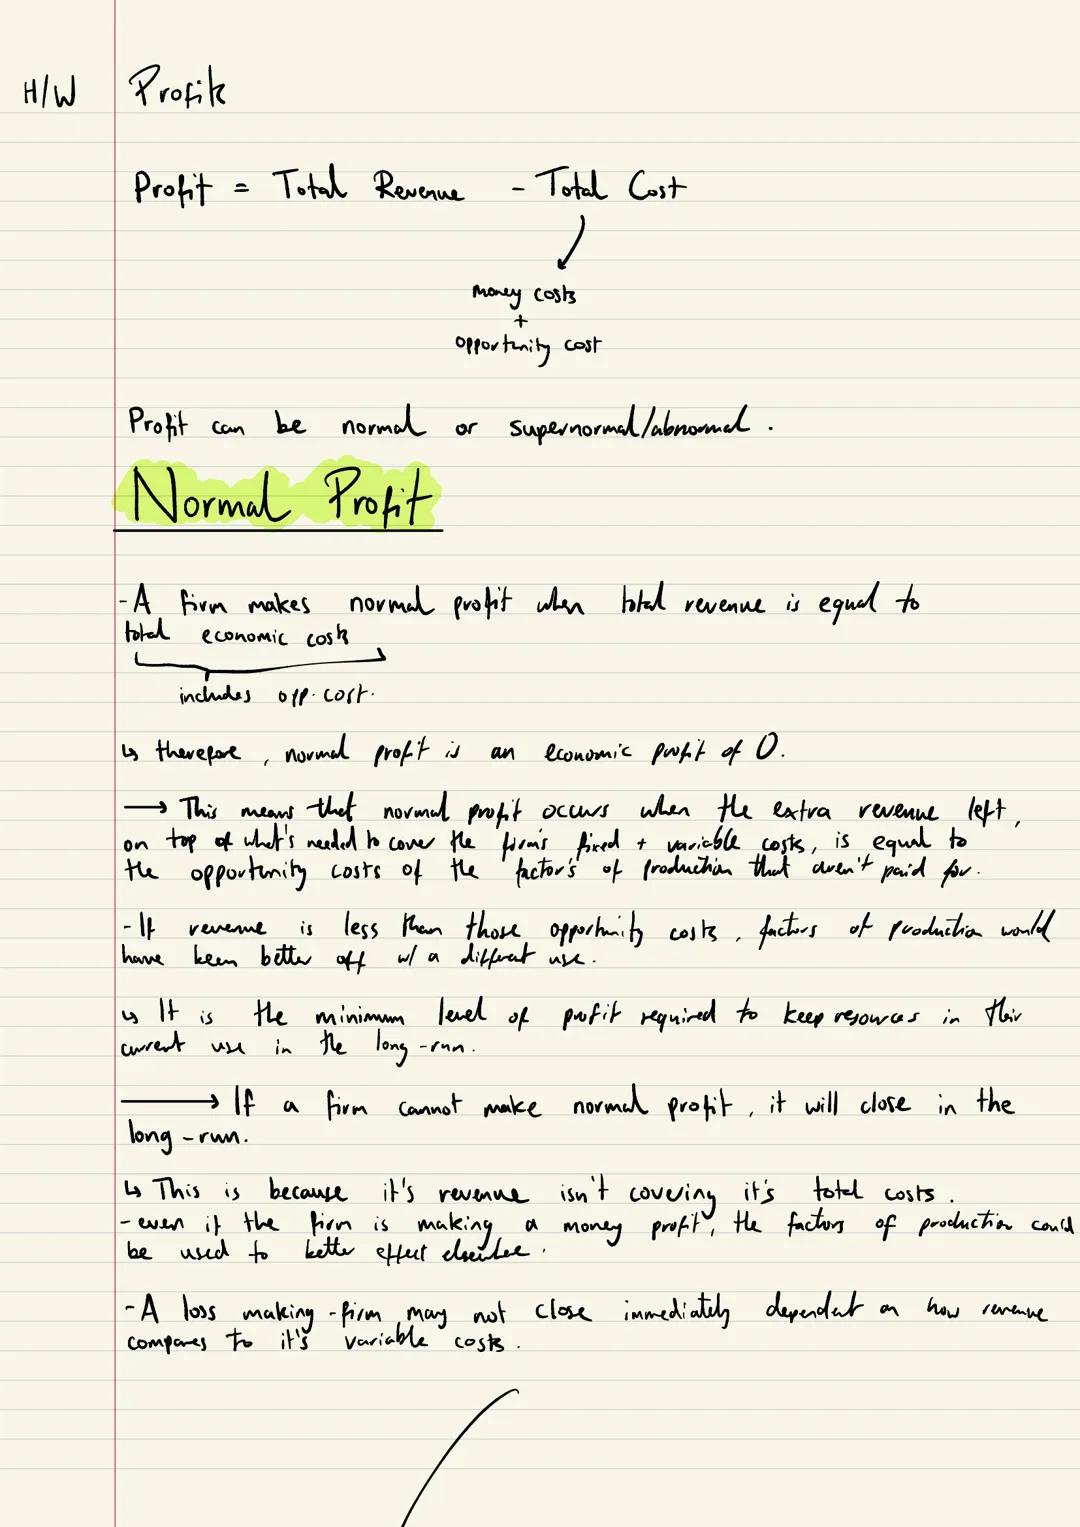 H/W Profits
Profit = Total Revenue - Total Cost
money costs
+
opportunity cost
Profit can be normal or supernormal/abnormal.
Normal Profit
- A firm makes normal profit when total revenue is equal to
total economic costs
includes opp. cost.
↳ therefore, normal profit is an economic profit of 0.
→ This means that normal profit occurs when the extra revenue left,
on top of what's needed to cover the firm's fixed + variable costs, is equal to
the opportunity costs of the factor's of production that aren't paid for.
- If revenue is less than those opportunity costs, factors of production would
have been better off w/ a different use.
↳ It is the minimum level of profit required to keep resources in their
current use in the long-run.
→ If a firm cannot make normal profit, it will close in the
long-run.
↳ This is because it's revenue isn't covering it's total costs.
- even if the firm is making a money profit, the factors of production could
be used to better effect elsewhere.
- A loss making-firm may not close immediately dependent on how revenue
compares to it's variable costs.